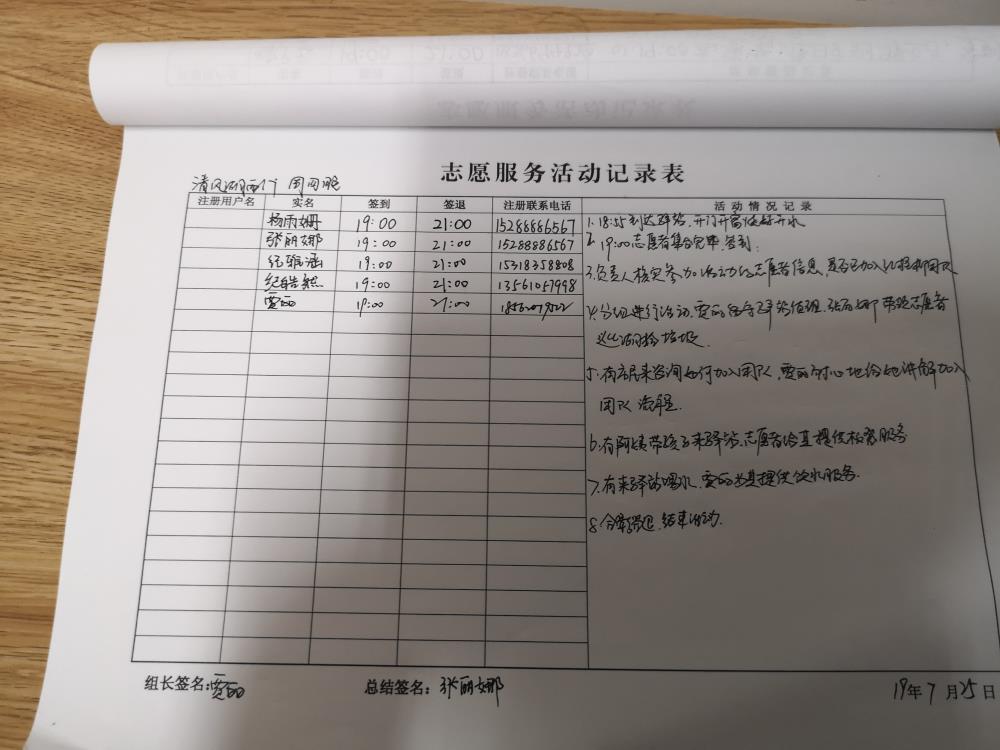 志愿服务活动记录表
清风湖西行
注册用户名 实名 签到 签退 注册联系电话 活动情况记录
杨雨姗 19:00 21:00 15288886567
张丽娜 19:00 21:00 15288886567
纪雅涵 19:00 21:00 15318358808
纪皓然 19:00 21:00 13561057998
贾丽 19:00 21:00
1. 18:55到达驿站,开门开窗烧好开水
2. 19:00志愿者集合完毕,签到.
3.负责人核实参加活动的志愿者信息,是否已加入
4.分组进行活动,贾丽留守驿站值班,张丽娜带领志愿者
捡垃圾.
5.有市民来咨询如何加入团队,贾丽耐心地给她讲解加入
团队流程.
6.有阿姨带孩子来驿站,志愿者给其提供服务
7.有来驿站喝水,贾丽为其提供饮水服务.
8.结束活动.
组长签名:贾丽 总结签名:张丽娜 19年7月25日